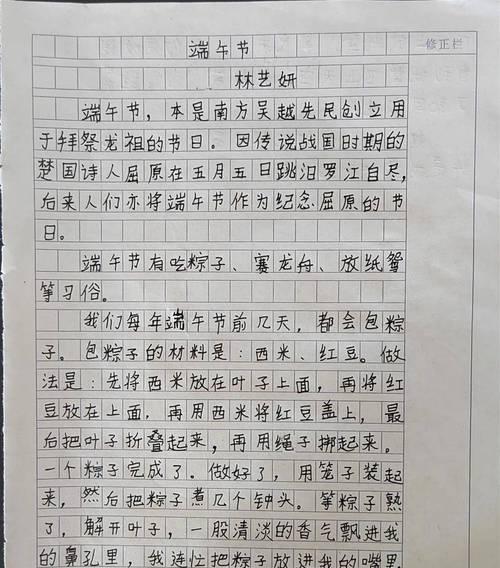 端午节
修正栏
林艺妍
端午节，本是南方吴越先民创立用
于拜祭龙祖的节日。因传说战国时期的
楚国诗人屈原在五月五日跳汨罗江自尽，
后来人们亦将端午节作为纪念屈原的节
日。
端午节有吃粽子、赛龙舟、放纸鸢
等习俗。
我们每年端午节前几天，都会包粽
子。包粽子的材料是：西米、红豆。做
法是：先将西米放在叶子上面，再将红
豆放在上面，再用西米将红豆盖上，最
后把叶子折叠起来，再用绳子绑起来。
一个粽子完成了。做好了，用笼子装起
来，然后把粽子煮几个钟头。等粽子熟
了，解开叶子，一股清淡的香气飘进我
的鼻孔里，我连忙把粽子放进我的嘴里